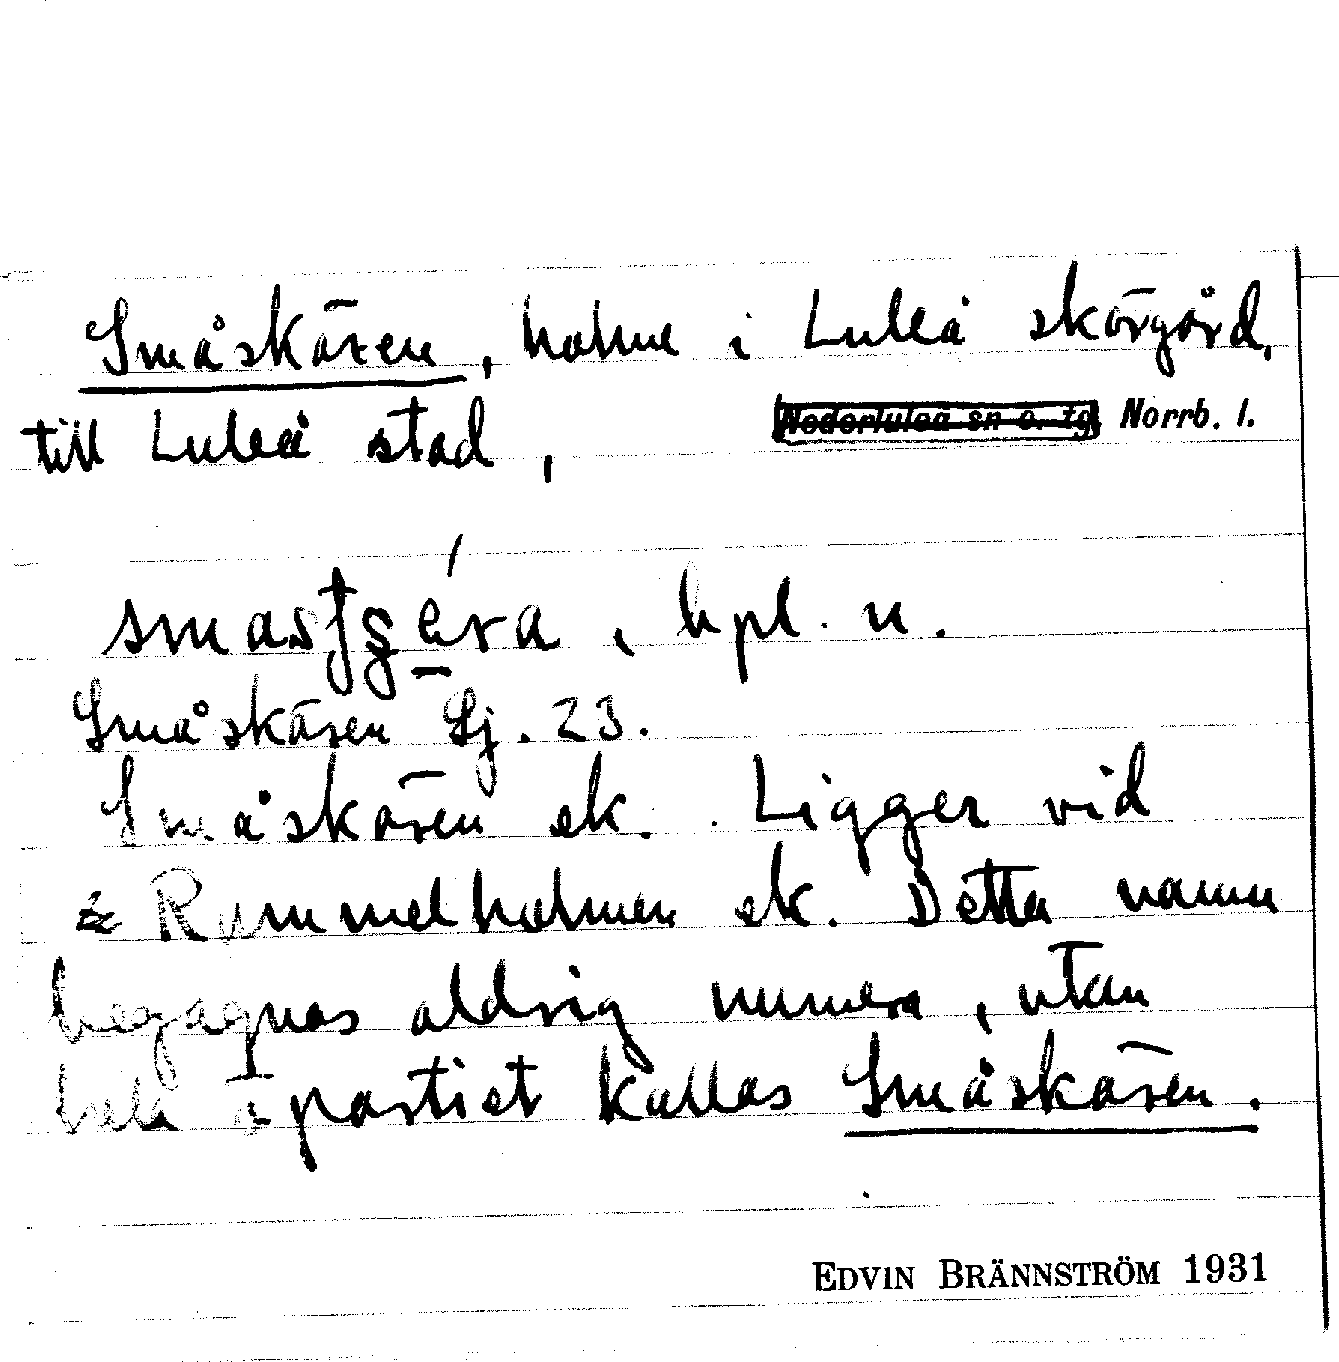 Småskären, holme i Luleå skärgård,
till Luleå stad, Nederluleå sn o. tg Norrb. l.
bpl. n.
Småskären Sj. 23.
Småskären ek. Ligger vid
Rammelholmen ek. Detta namn
begagnas aldrig numera, utan
hela öpartiet kallas Småskären.
EDVIN BRÄNNSTRÖM 1931